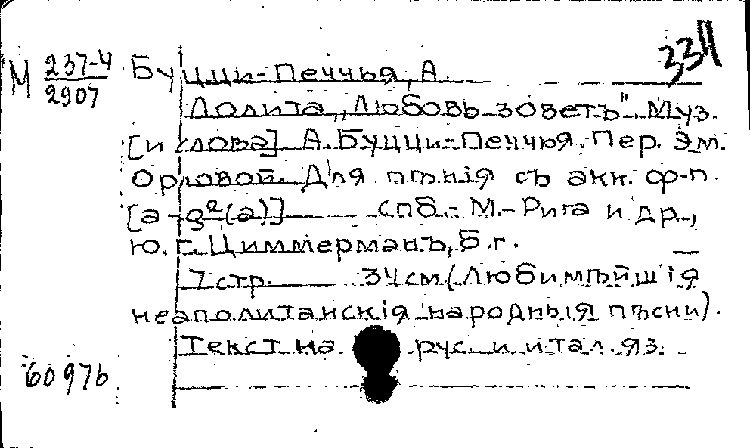 334
М 237-4
2907
Буцци-Печчья, А.
Лолита „Любовь зоветъ". Муз.
[и слова] А. Буцци-Печчья. Пер. Эм.
Орловой. Для пѣнія съ акк. ф-п.
[a-g²(a)] СПб.-М.-Рига и др.,
Ю. Г. Циммерманъ, Б.г.
7 стр. 34 см (Любимѣйшія
неаполитанскія народныя пѣсни).
Текст на рус. и итал. яз.
60976